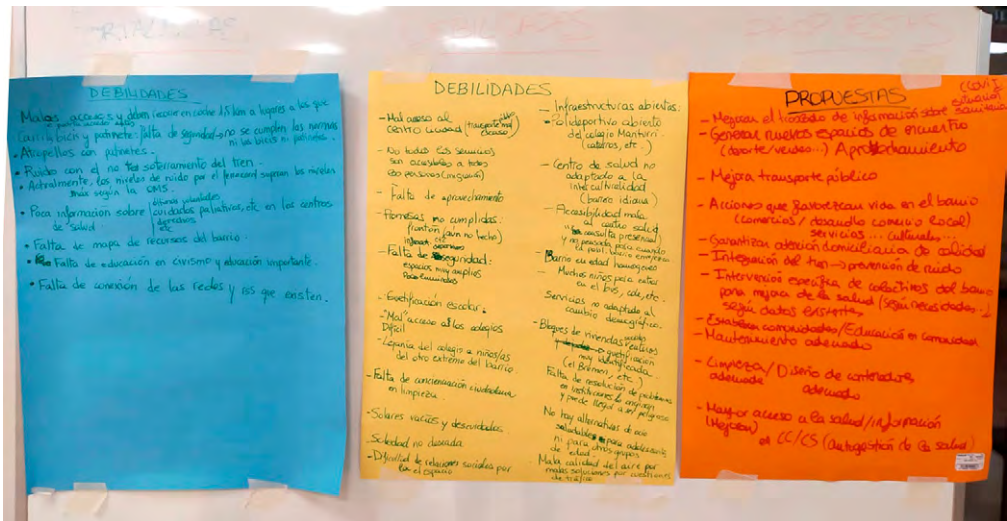 FORTALEZAS
DEBILIDADES
PROPUESTAS
DEBILIDADES
Malos accesos y deben ir en coche 1.5 km a lugares a los que
Carril bici y patinete: falta de seguridad → no se cumplen las normas
ni las bicis ni patinetes.
• Atropellos con patinetes.
• Ruido con el no soterramiento del tren.
• Actualmente, los niveles de ruido por el ferrocarril superan los niveles
más según la OMS.
• Poca información sobre
cuidados paliativos, etc en los centros
de salud.
etc
• Falta de mapa de recursos del barrio.
• Falta de educación en civismo y educación importante.
• Falta de conexión de las redes y que existen.
DEBILIDADES
- Mal acceso al
centro ciudad (transporte
escaso)
- No todos los servicios
son accesibles a todas
las personas
- Falta de aprovechamiento
- Promesas no cumplidas:
(frontón (aun no hecho)
etc
- Falta de seguridad:
espacios muy amplios
Poco iluminados
- Gentificación escolar.
- "Mal" acceso a los colegios
Difícil
- Lejanía del colegio a niños/as
del otro extremo del barrio.
- Falta de concienciación ciudadana
en limpieza.
- Solares vacíos y descuidados
- Soledad no deseada
- Dificultad de relaciones sociales por
el espacio
- Infraestructuras abiertas:
- Polideportivo abierto
del colegio Manturri.
(catarros, etc.)
- Centro de salud no
adaptado a la
interculturalidad
(barrera idioma)
- Accesibilidad mala
al centro salud
consulta presencial)
y no pensada para cuando
- Barrio en edad homogéneo
- Muchos niños para entrar
en el bus, cole, etc.
Servicios no adaptado al
cambio demográfico.
- Bloques de viviendas
gentrificación
muy identificada.
(el Bremen, etc.)
Falta de resolución de problemas
en instituciones
y puede llegar a ser peligroso
No hay alternativas de ocio
saludables para adolescentes
ni para otros grupos
de edad.
- Mala calidad del aire por
malas soluciones por cuestiones
de tráfico
PROPUESTAS
(COVID
situación
sanitaria)
- Mejorar el traslado de información sobre
- Generar nuevos espacios de encuentro
(deporte/verdes...) Aprovechamiento
- Mejora transporte público
- Acciones que favorezcan vida en el barrio
(comercios / desarrollo comercio local)
servicios... culturales...
- Garantizar atención domiciliaria de calidad
- Integración del tren → prevención de ruido
- Intervención específica de colectivos del barrio
para mejora de la salud (según necesidades...
según datos existentes
- Establecer comunidades/Educación en comunidad
- Mantenimiento adecuado
- Limpieza/Diseño de contenedores
adecuada adecuado
- Mayor acceso a la salud/información
(Mejorar)
al CC/CS (Autogestión de la salud)